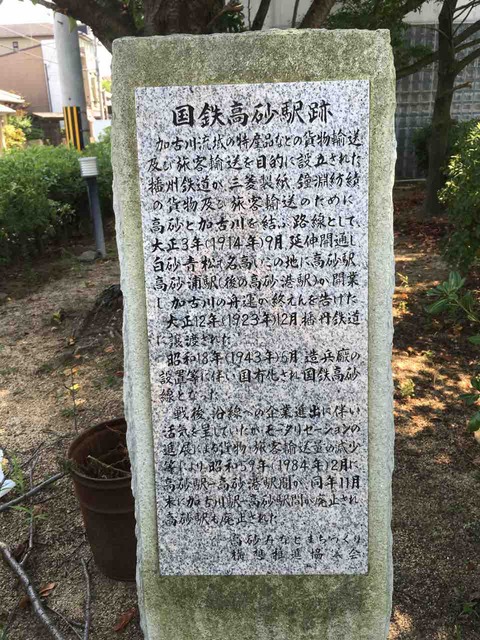 国鉄高砂駅跡
加古川流域の特産品などの貨物輸送
及び旅客輸送を目的に設立された
播州鉄道が、三菱製紙、鐘淵紡績
の貨物及び旅客輸送のために
高砂と加古川を結ぶ路線として、
大正3年(1914年)9月延伸開通し
白砂青松で名高いこの地に高砂駅
高砂浦駅(後の高砂港駅)が開業
し、加古川の舟運が終えんを告げた
大正12年(1923年)12月播丹鉄道
に譲渡された
昭和18年(1943年)6月 造兵廠の
設置等に伴い国有化され国鉄高砂
線となった
戦後、沿線への企業進出に伴い
活気を呈していたがモータリゼーションの
進展により貨物・旅客輸送量の減少
等により、昭和59年(1984年)2月に
高砂駅-高砂港駅間が、同年11月
末に加古川駅-高砂駅間が廃止され
高砂駅も廃止された
高砂みなとまちづくり
構想推進協議会